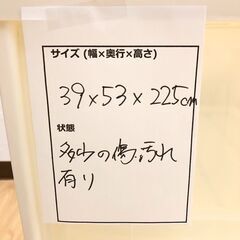 サイズ (幅×奥行×高さ)
39×53×225cm
状態
多少の傷汚れ
有り